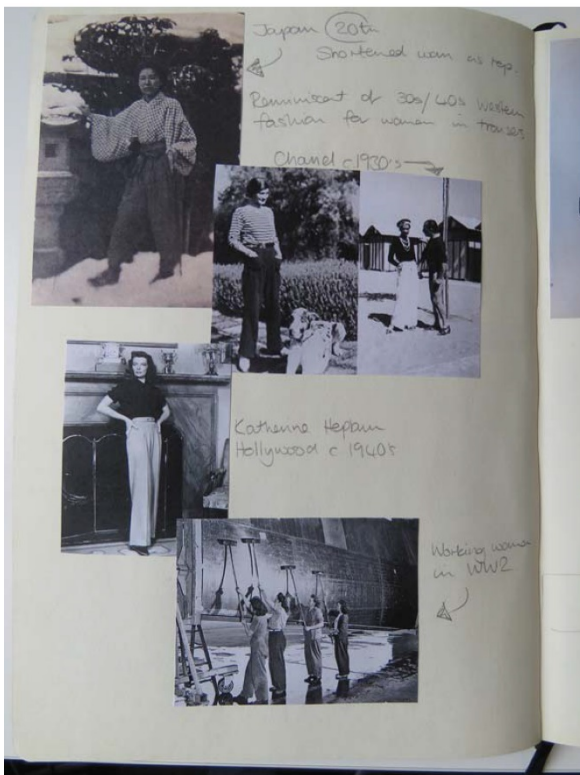 Japan 20th
Shortened as top.
Reminiscent of 30s/40s Western
fashion for women in trousers
Chanel c1930's
Katherine Hepburn
Hollywood c 1940s
Working women
in WW2.